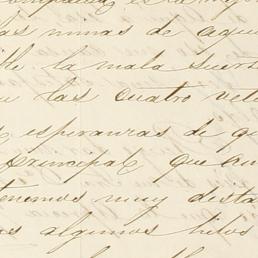 las minas de aque
la mala suerte
las cuatro vet
esperanzas de q
principal que au
tenemos muy dista
as algunos hilos